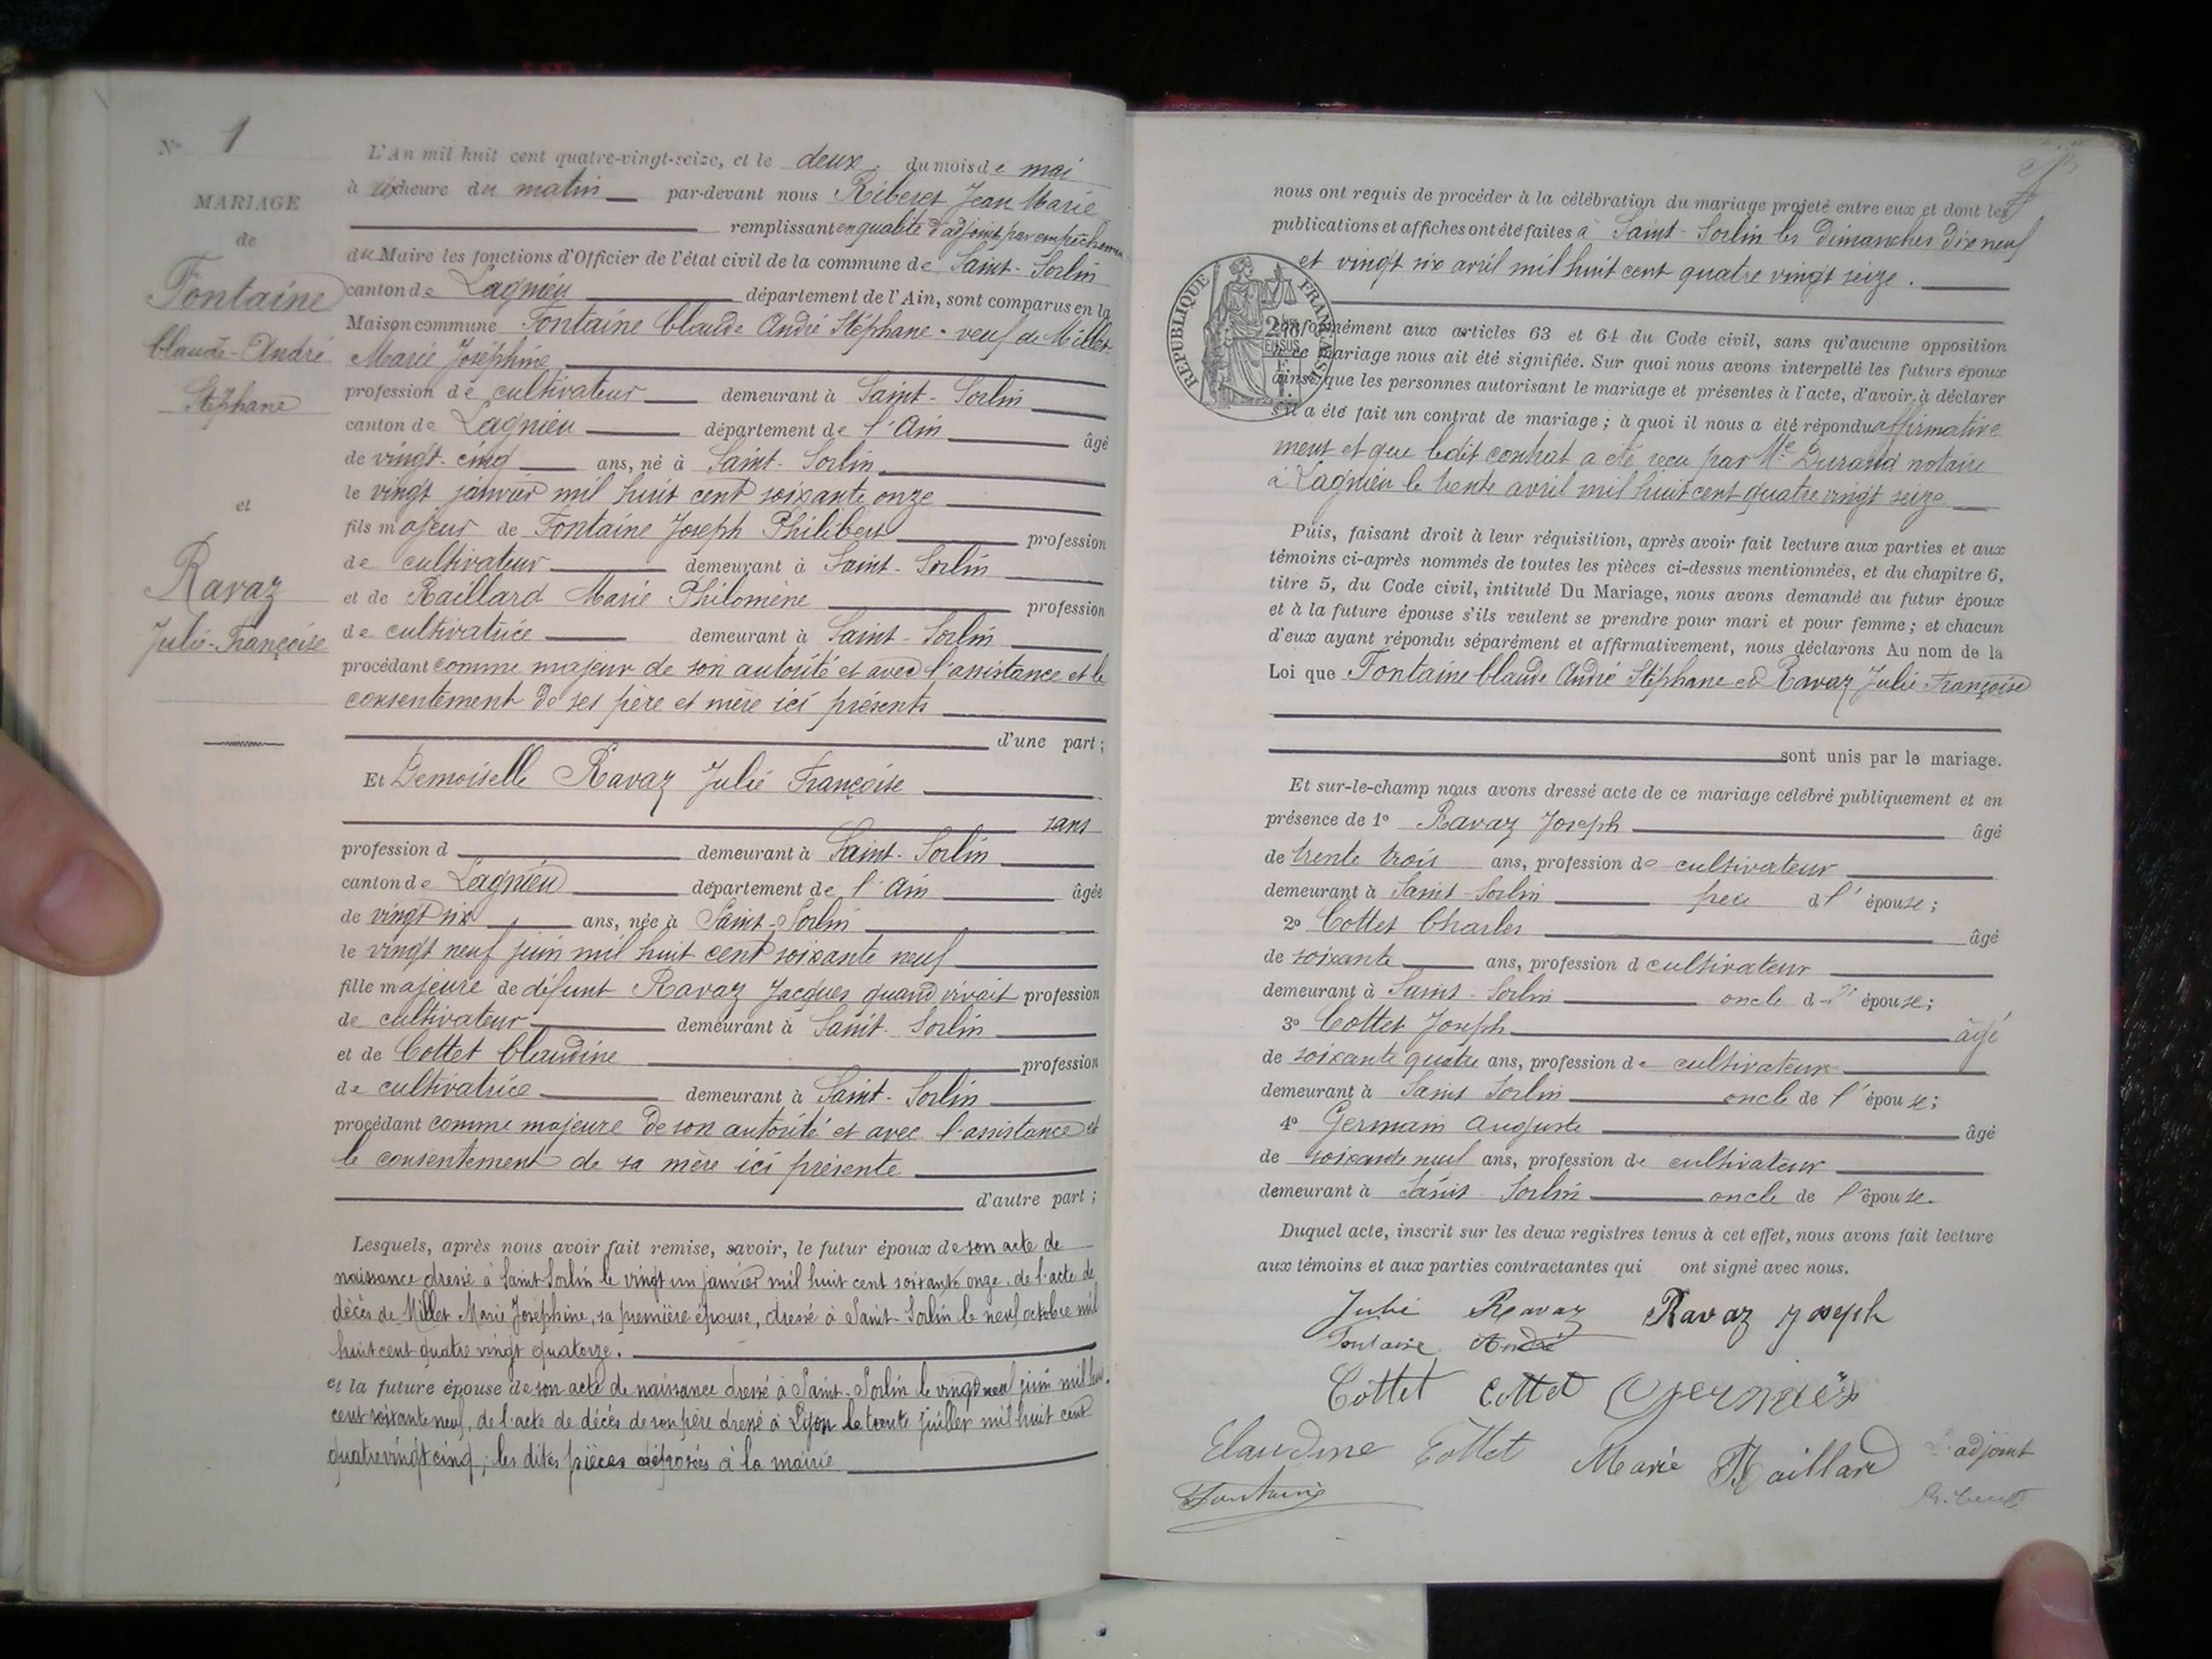 N° 1
MARIAGE
de
Fontaine
Claude-André
Stéphane
et
Ravaz
Julie-Françoise
L'An mil huit cent quatre-vingt-seize, et le deux du mois de mai
à six heure du matin par-devant nous Riberet Jean Marie
remplissant en qualité d'adjoint par empêchement
du Maire les fonctions d'Officier de l'état civil de la commune de Saint-Sorlin
canton de Lagnieu département de l'Ain, sont comparus en la
Maison commune Fontaine Claude André Stéphane - veuf de Millet
Marie Joséphine
profession de cultivateur demeurant à Saint-Sorlin
canton de Lagnieu département de l'Ain âgé
de vingt-cinq ans, né à Saint-Sorlin
le vingt janvier mil huit cent soixante onze
fils majeur de Fontaine Joseph Philibert profession
de cultivateur demeurant à Saint-Sorlin
et de Raillard Marie Philomène profession
de cultivatrice demeurant à Saint-Sorlin
procédant comme majeur de son autorité et avec l'assistance et le
consentement de ses père et mère ici présents
d'une part;
Et Demoiselle Ravaz Julie Françoise
sans
profession d demeurant à Saint-Sorlin
canton de Lagnieu département de l'Ain âgée
de vingt six ans, née à Saint-Sorlin
le vingt neuf juin mil huit cent soixante neuf
fille majeure de défunt Ravaz Jacques quand vivait profession
de cultivateur demeurant à Saint-Sorlin
et de Cottet Claudine profession
de cultivatrice demeurant à Saint-Sorlin
procédant comme majeure de son autorité et avec l'assistance et
le consentement de sa mère ici présente
d'autre part;
Lesquels, après nous avoir fait remise, savoir, le futur époux de son acte de
naissance dressé à Saint-Sorlin le vingt un janvier mil huit cent soixante onze, de l'acte de
décès de Millet Marie Joséphine, sa première épouse, dressé à Saint-Sorlin le neuf octobre mil
huit cent quatre vingt quatorze.
et la future épouse de son acte de naissance dressé à Saint-Sorlin le vingt neuf juin mil huit
cent soixante neuf, de l'acte de décès de son père dressé à Lyon le trente juillet mil huit cent
quatre vingt cinq; les dites pièces déposées à la mairie
nous ont requis de procéder à la célébration du mariage projeté entre eux et dont les
publications et affiches ont été faites à Saint-Sorlin les dimanches dix neuf
et vingt six avril mil huit cent quatre vingt seize.
RÉPUBLIQUE FRANÇAISE
conformément aux articles 63 et 64 du Code civil, sans qu'aucune opposition
à ce mariage nous ait été signifiée. Sur quoi nous avons interpellé les futurs époux
ainsi que les personnes autorisant le mariage et présentes à l'acte, d'avoir à déclarer
s'il a été fait un contrat de mariage; à quoi il nous a été répondu affirmative
ment et que ledit contrat a été reçu par Me Durand notaire
à Lagnieu le trente avril mil huit cent quatre vingt seize
Puis, faisant droit à leur réquisition, après avoir fait lecture aux parties et aux
témoins ci-après nommés de toutes les pièces ci-dessus mentionnées, et du chapitre 6,
titre 5, du Code civil, intitulé Du Mariage, nous avons demandé au futur époux
et à la future épouse s'ils veulent se prendre pour mari et pour femme; et chacun
d'eux ayant répondu séparément et affirmativement, nous déclarons Au nom de la
Loi que Fontaine Claude André Stéphane et Ravaz Julie Françoise
sont unis par le mariage.
Et sur-le-champ nous avons dressé acte de ce mariage célébré publiquement et en
présence de 1° Ravaz Joseph âgé
de trente trois ans, profession de cultivateur
demeurant à Saint-Sorlin frère d l'épouse;
2° Cottet Charles âgé
de soixante ans, profession d cultivateur
demeurant à Saint-Sorlin oncle d l'épouse;
3° Cottet Joseph âgé
de soixante quatre ans, profession de cultivateur
demeurant à Saint Sorlin oncle de l'épouse;
4° Germain Auguste âgé
de soixante neuf ans, profession de cultivateur
demeurant à Saint-Sorlin oncle de l'épouse.
Duquel acte, inscrit sur les deux registres tenus à cet effet, nous avons fait lecture
aux témoins et aux parties contractantes qui ont signé avec nous.
Julie Ravaz Ravaz Joseph
Fontaine André
Cottet Cottet Germain
Claudine Cottet Marie Raillard L'adjoint
Fontaine Riberet